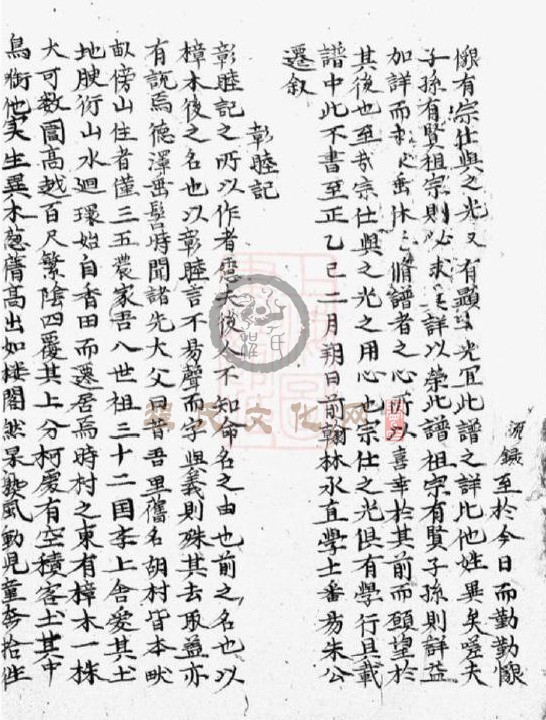 至於今日而勤勤懇
懇有宗仕與之光又有顯 光宜此譜之詳比他姓異矣噫夫
子孫有賢祖宗則必求其詳以榮此譜祖宗有賢子孫則詳益
加詳而 垂休 脩譜者之心所以喜幸於其前而願望於
其後也至哉宗仕與之光之用心也宗仕之光俱有學行具載
譜中此不書至正乙巳二月朔日前翰林永直學士番易朱公
遷叙
彰睦記
彰睦記之所以作者慮夫後人不知命名之由也前之名也以
樟木後之名也以彰睦言不易聲而字與義則殊其去取蓋亦
有說焉德澤垂髫時聞諸先大父同昔吾里舊名胡村皆本畎
畝傍山住者僅三五農家吾八世祖三十二国李上舍愛其土
地腴衍山水迴環始自香田而遷居焉時村之東有樟木一株
大可數圍高越百尺繁陰四覆其上分柯處有空積客土其中
鳥銜他實生異木蔥蒨高出如楼閣然果熟風動兒童奔拾往
氏文化网